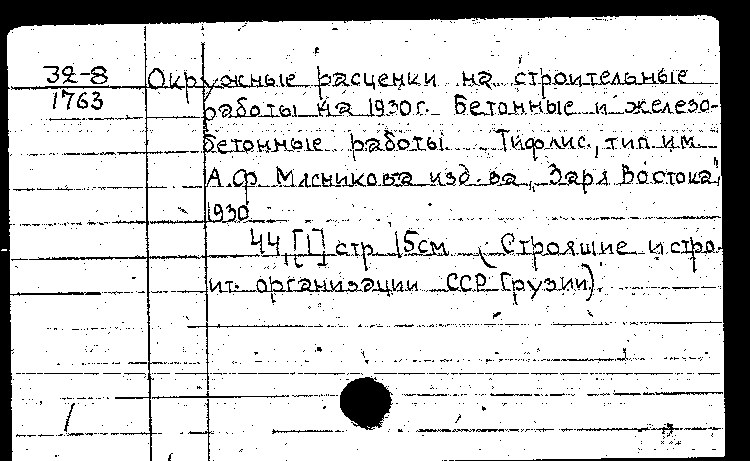 32-8 Окружные расценки на строительные
1763 работы на 1930г. Бетонные и железо-
бетонные работы Тифлис, тип им
А.Ф Мясникова изд-ва „Заря Востока",
1930
44,[1] стр 15см (Строящие и стро-
ит. организации ССР Грузии).